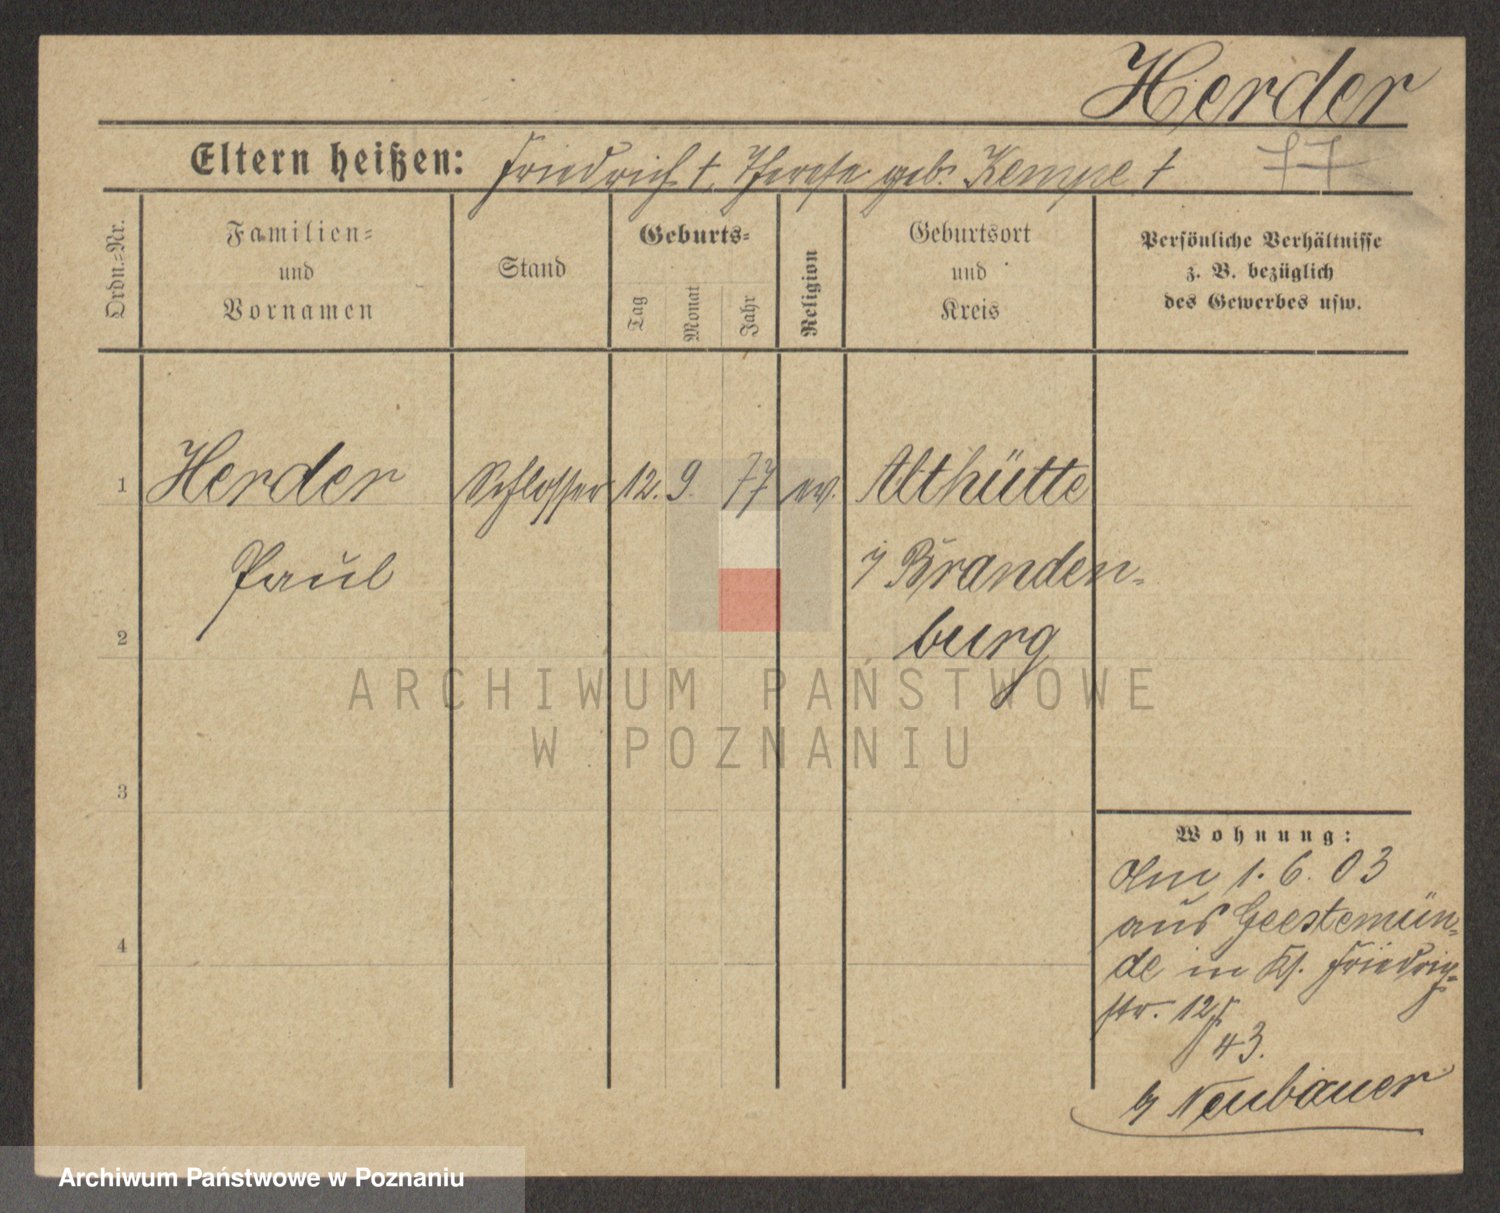 Herder
Eltern heißen: Friedrich †, Therese geb. Kempe †
77
Ordn.-Nr.
Familien-
und
Vornamen
Stand
Geburts-
Tag
Monat
Jahr
Religion
Geburtsort
und
Kreis
Persönliche Verhältnisse
z. B. bezüglich
des Gewerbes usw.
1 Herder Schlosser 12. 9. 77 ev. Althütte
Paul
i/ Branden-
2
burg
ARCHIWUM PAŃSTWOWE
W POZNANIU
3
4
Wohnung:
Am 1. 6. 03
aus Geestemün-
de in Friedrich-
str. 12
43.
b/ Neubauer
Archiwum Państwowe w Poznaniu